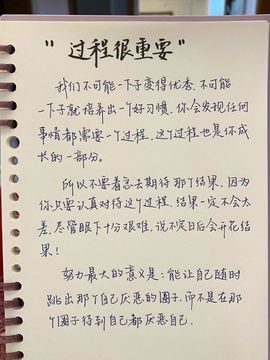 "过程很重要"
我们不可能一下子变得优秀,不可能
一下子就培养出一个好习惯,你会发现任何
事情都需要一个过程,这个过程也是你成
长的一部分。
所以不要着急去期待那个结果,因为
你只要认真对待这个过程,结果一定不会太
差,尽管眼下十分艰难,说不定日后会开花结
果!
努力最大的意义是:能让自己随时
跳出那个自己厌恶的圈子,而不是在那
个圈子得到自己都厌恶自己.